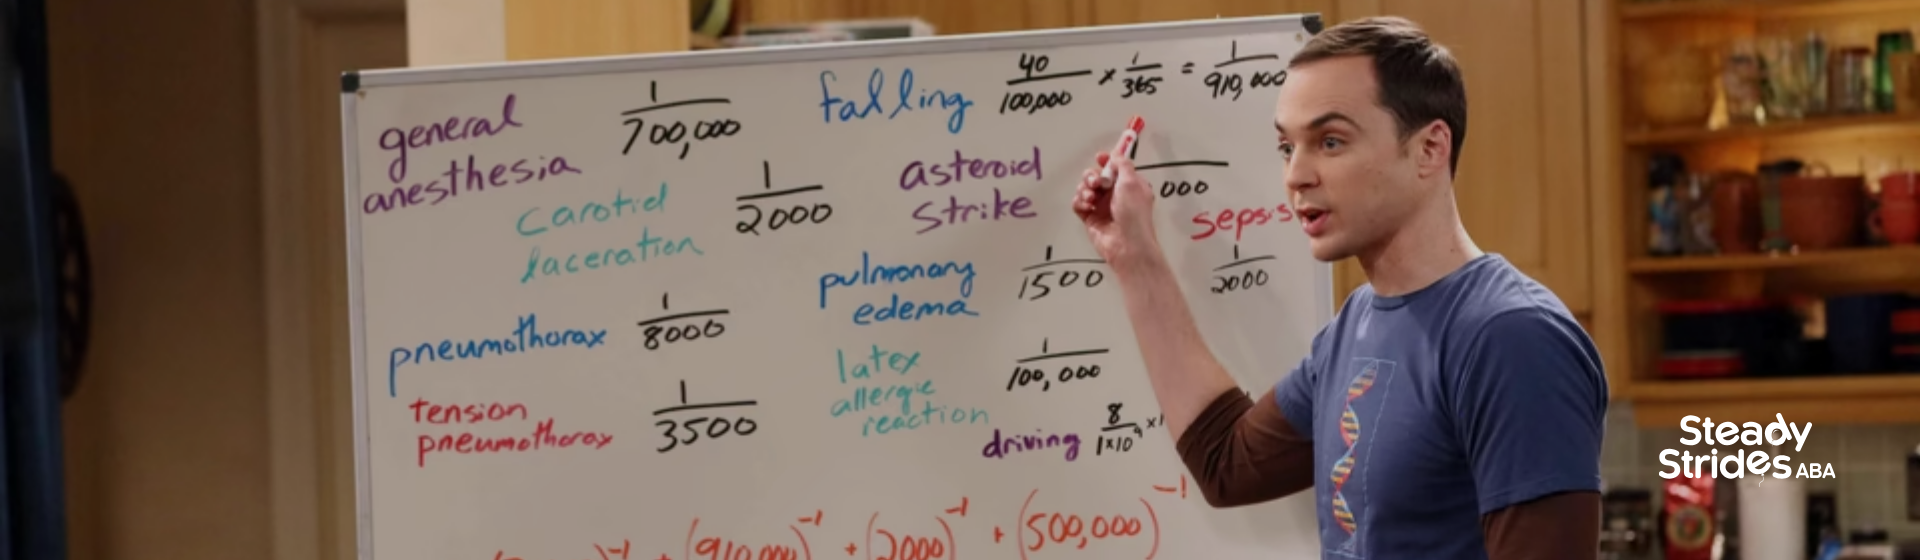 general
anesthesia
1
700,000
falling
40
100,000
× 1
365
= 1
910,000
carotid
laceration
1
2000
asteroid
strike
000
sepsis
1
2000
pulmonary
edema
1
1500
pneumothorax
1
8000
latex
allergic
reaction
1
100,000
tension
pneumothorax
1
3500
driving
8
1×10⁹
×1
)⁻¹ + (910,000)⁻¹ + (2000)⁻¹ + (500,000)⁻¹
Steady
Strides ABA